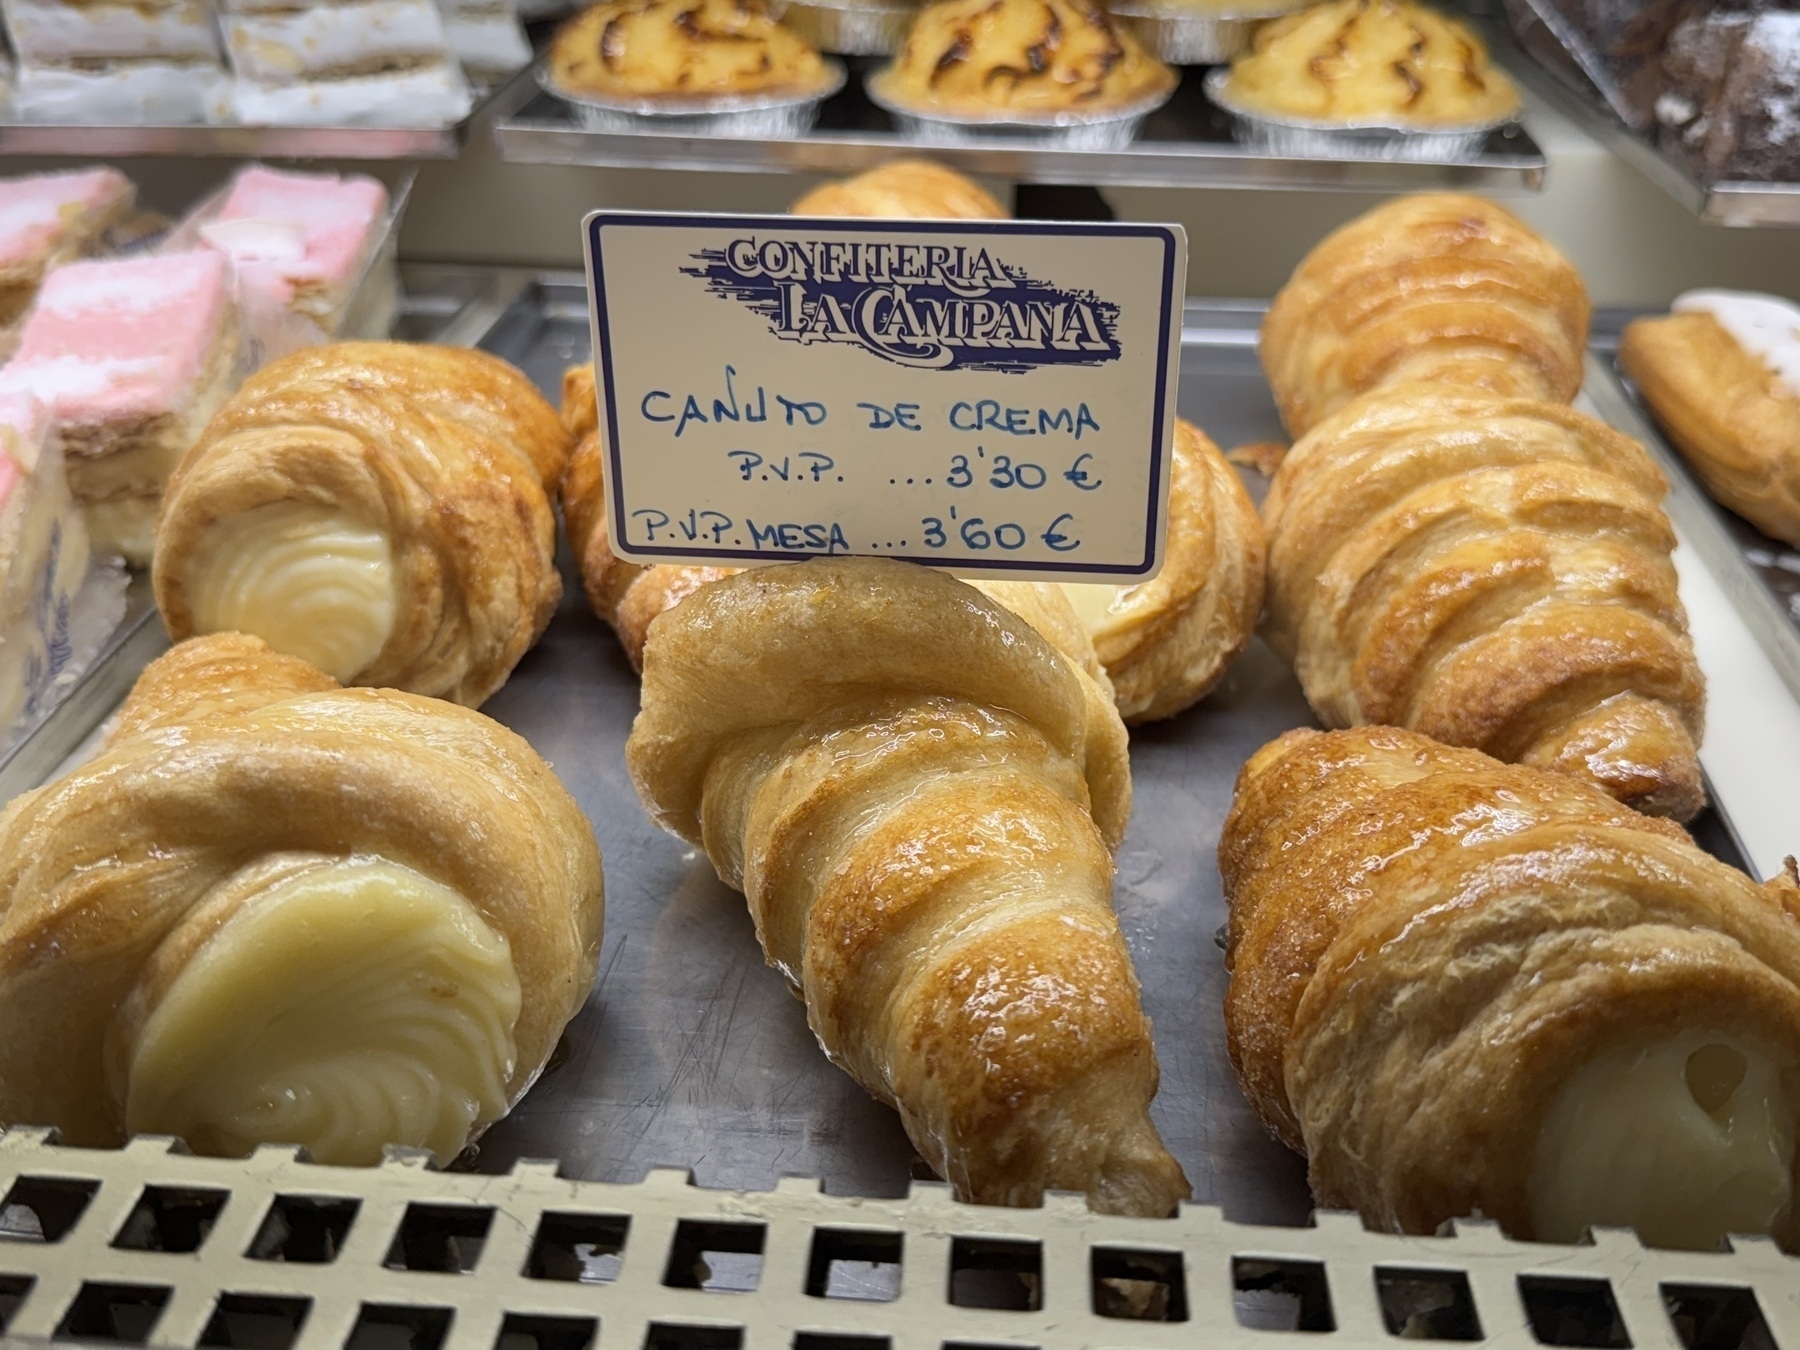 CONFITERIA
LA CAMPANA
CAÑUTO DE CREMA
P.V.P. ... 3'30 €
P.V.P. MESA ... 3'60 €